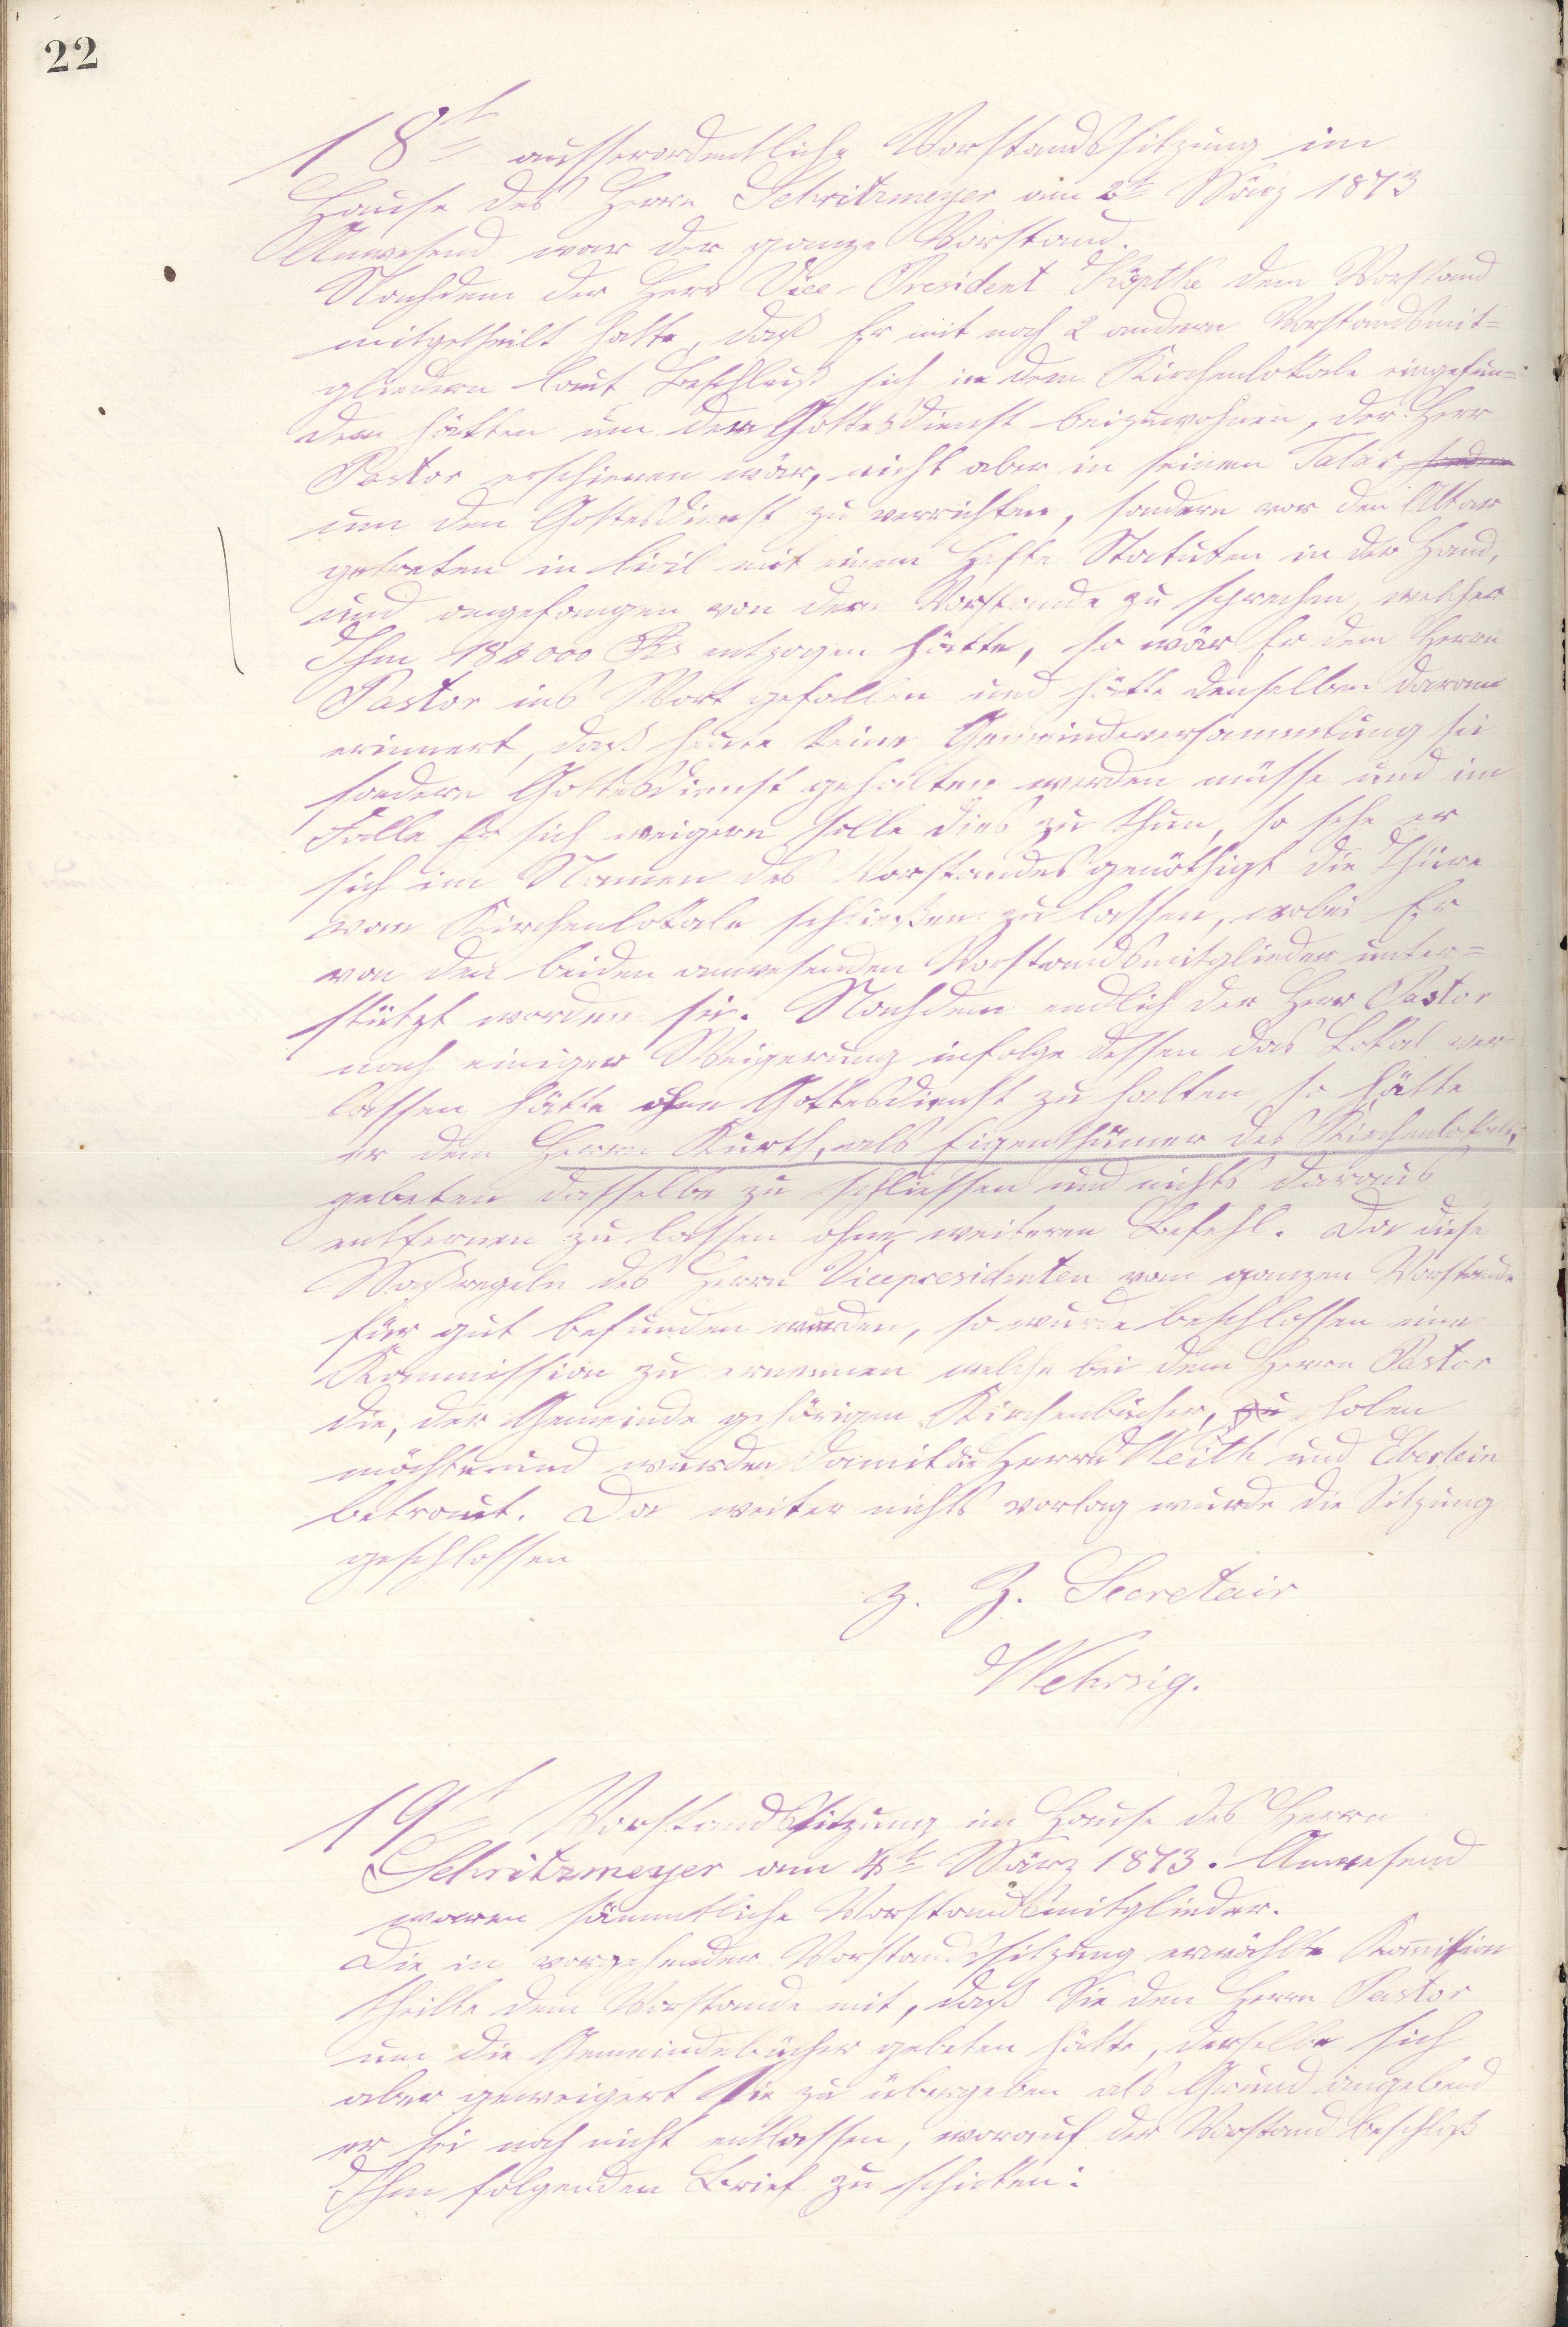 22
18t ausserordentliche Vorstandssitzung im
Hause des Herrn Schritzmeyer am 2t März 1873
Anwesend war der ganze Vorstand.
Nachdem der Herr Vice-President Köptke dem Vorstand
mitgetheilt hatte, daß Er mit noch 2 andern Vorstandsmit=
gliedern laut Beschluß sich in dem Kirchenlokale eingefun=
den hätten um den Gottesdienst beizuwohnen, der Herr
Pastor erschienen wär, nicht aber in seinen Talar sondern
um den Gottesdienst zu verrichten, sondern vor den Altar
getreten in Civil mit einem Hefte Statuten in der Hand,
und angefangen von dem Vorstande zu sprechen, welcher
Ihm 180000 Rs entzogen hätte, so wär Er dem Herrn
Pastor ins Wort gefallen und hätte denselben daran
erinnert, daß heute keine Gemeindeversammlung sei
sondern Gottesdienst gehalten werden müsse und im
Falle Er sich weigern solle dies zu thun, so sehe er
sich im Namen des Vorstandes genöthigt die Thüre
vom Kirchenlokale schließen zu lassen, wobei Er
von den beiden anwesenden Vorstandsmitglieder unter=
stützt worden sei. Nachdem endlich der Herr Pastor
nach einiger Weigerung infolge dessen das Lokal ver=
lassen hätte ohne Gottesdienst zu halten, so hätte
er dem Herrn Kurth, als Eigenthümer des Kirchenlokals,
gebeten dasselbe zu schliessen und nichts daraus
entfernen zu lassen ohne weiteren Befehl. Da diese
Maßregeln des Herrn Vicepresidenten vom ganzen Vorstande
für gut befunden wurden, so wurde beschlossen eine
Kommission zu ernennen welche bei dem Herrn Pastor
die, der Gemeinde gehörigen Kirchenbücher, zu holen
möchte und wurden damit die Herrn Weith und Eberlein
betraut. Da weiter nichts vorlag wurde die Sitzung
geschlossen
z. Z. Secretair
Wehrsig.
19t Vorstandssitzung im Hause des Herrn
Schritzmeyer am 4t März 1873. Anwesend
waren sämmtliche Vorstandsmitglieder.
Die in vorgehender Vorstandssitzung erwählte Kommission
theilte dem Vorstande mit, daß Sie den Herrn Pastor
um die Gemeindebücher gebeten hätte, derselbe sich
aber geweigert Sie zu übergeben als Grund angebend
er sei noch nicht entlassen, worauf der Vorstand beschloß
Ihm folgenden Brief zu schicken: